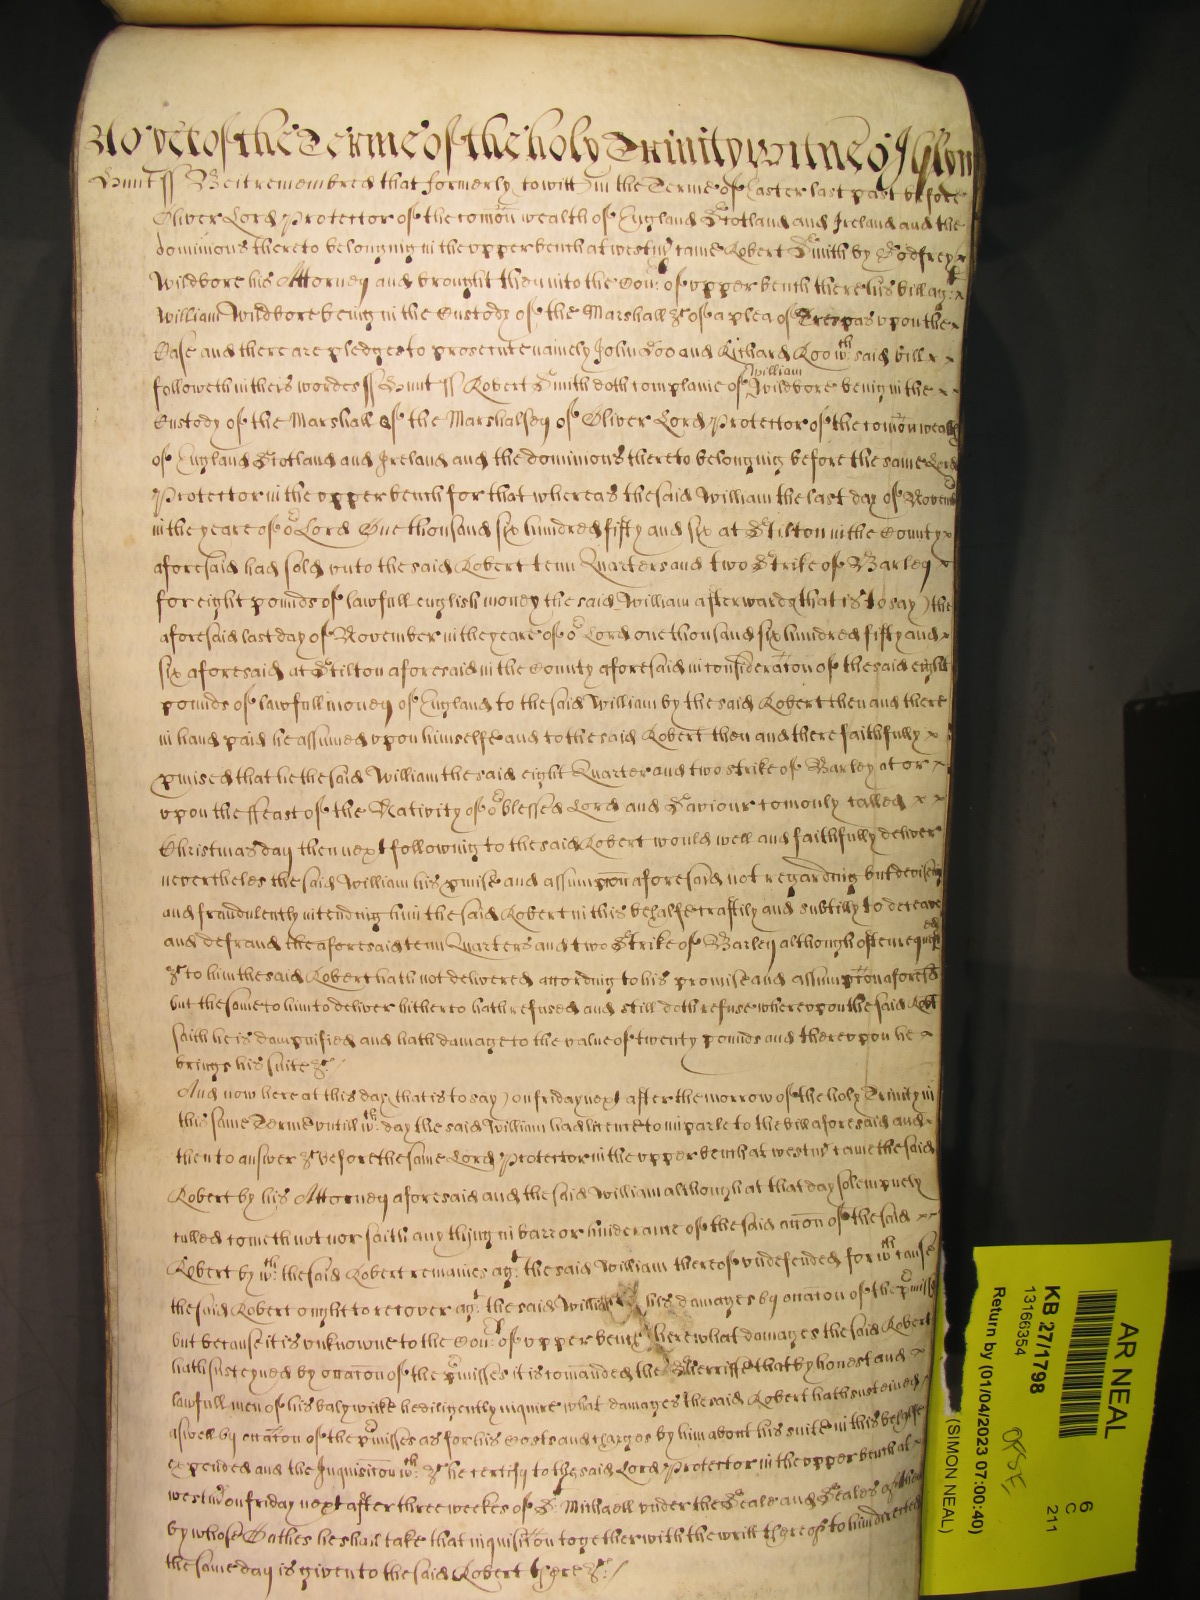 As yet of the Terme of the holy Trinity Witnes J Glyn
Hunt ss Be it remembred that formerly to witt in the Terme of Easter last past before
Oliver Lord Protector of the com̃on wealth of England Scotland and Ireland and the
dominions thereto belonging in the upper bench at westm̃ came Robert Smith by Godfrey x
Wildbore his Attorney and brought then into the Cou:t of upper bench there his bill ag:t x
William Wildbore being in the Custody of the Marshall &c of a plea of Trespas upon the x
Case and there are pledges to prosecute namely John Doo and Richard Roo w:th said bill x x
followeth in theis wordes ss Hunt ss Robert Smith doth complaine of William Wildbore being in the x x
Custody of the Marshall of the Marshalsey of Oliver Lord Protector of the com̃on wealth
of England Scotland and Ireland and the dominions thereto belonging before the same Lord
Protector in the upper bench for that whereas the said William the last day of Novemb
in the yeare of o:r Lord One thousand six hundred fifty and six at Stilton in the County x
aforesaid had sold unto the said Robert tenn Quarters and two Strike of Barley x
for eight pounds of lawfull english money the said William afterwards (that is to say) the
aforesaid last day of November in the yeare of o:r Lord one thousand six hundred fifty and x
six aforesaid at Stilton aforesaid in the County aforesaid in consideracõn of the said eight
pounds of lawfull money of England to the said William by the said Robert then and there
in hand paid he assumed upon himselfe and to the said Robert then and there faithfully x
pmised that he the said William the said eight Quarter and two strike of Barley at or x
upon the ffeast of the Nativity of o:r blessed Lord and Saviour comonly called x x
Christmas day then next following to the said Robert would well and faithfully deliver
nevertheles the said William his pmise and assumpcõn aforesaid not regarding but devising
and fraudulently intending him the said Robert in this behalfe craftily and subtilly to deceave
and defraud the aforesaid tenn Quarters and two Strike of Barley although often requested
&c to him the said Robert hath not delivered according to his promise and assumpcõn aforesd
but the same to him to deliver hitherto hath refused and still doth refuse whereupon the said Robt
saith he is dampnified and hath damage to the value of twenty pounds and thereupon he x
brings his suite &c /
And now here at this day (that is to say) on friday next after the morrow of the holy Trinity in
this same Terme untill w:ch day the said William had licence to imparle to the bill aforesaid and x
then to answer &c before the same Lord Protector in the upper bench at westm̃ came the said
Robert by his Attorney aforesaid and the said William although at that day solempnely
called cometh not nor saith any thing in barr or hinderance of the said accõn of the said x x
Robert by w:ch the said Robert remaines ag:t the said William thereof undefended for w:ch cause
the said Robert ought to recover ag:t the said William his damages by occacõn of the pmisses
but because it is unknowne to the Cou:t of upper bench here what damages the said Robert
hath susteyned by occacõn of the pmisses it is com̃anded the Sherriffe that by honest and x
lawfull men of his balywike he diligently inquire what damages the said Robert hath susteined
aswell by occacõn of the pmisses as for his Costs and charges by him about his suite in this behalfe
expended and the Inquisicõn w:ch &c he certify to the said Lord Protector in the upper bench at x
westm̃ on friday next after three weekes of S:t Michaell under the Seale and Seales of them
by whose Oathes he shall take that inquisicõn together with the writt thereof to him directed
the same day is given to the said Robert there &c /
AR NEAL
KB 27/1798
13166354
Return by (01/04/2023 07:00:40)
(SIMON NEAL)
6
C
211